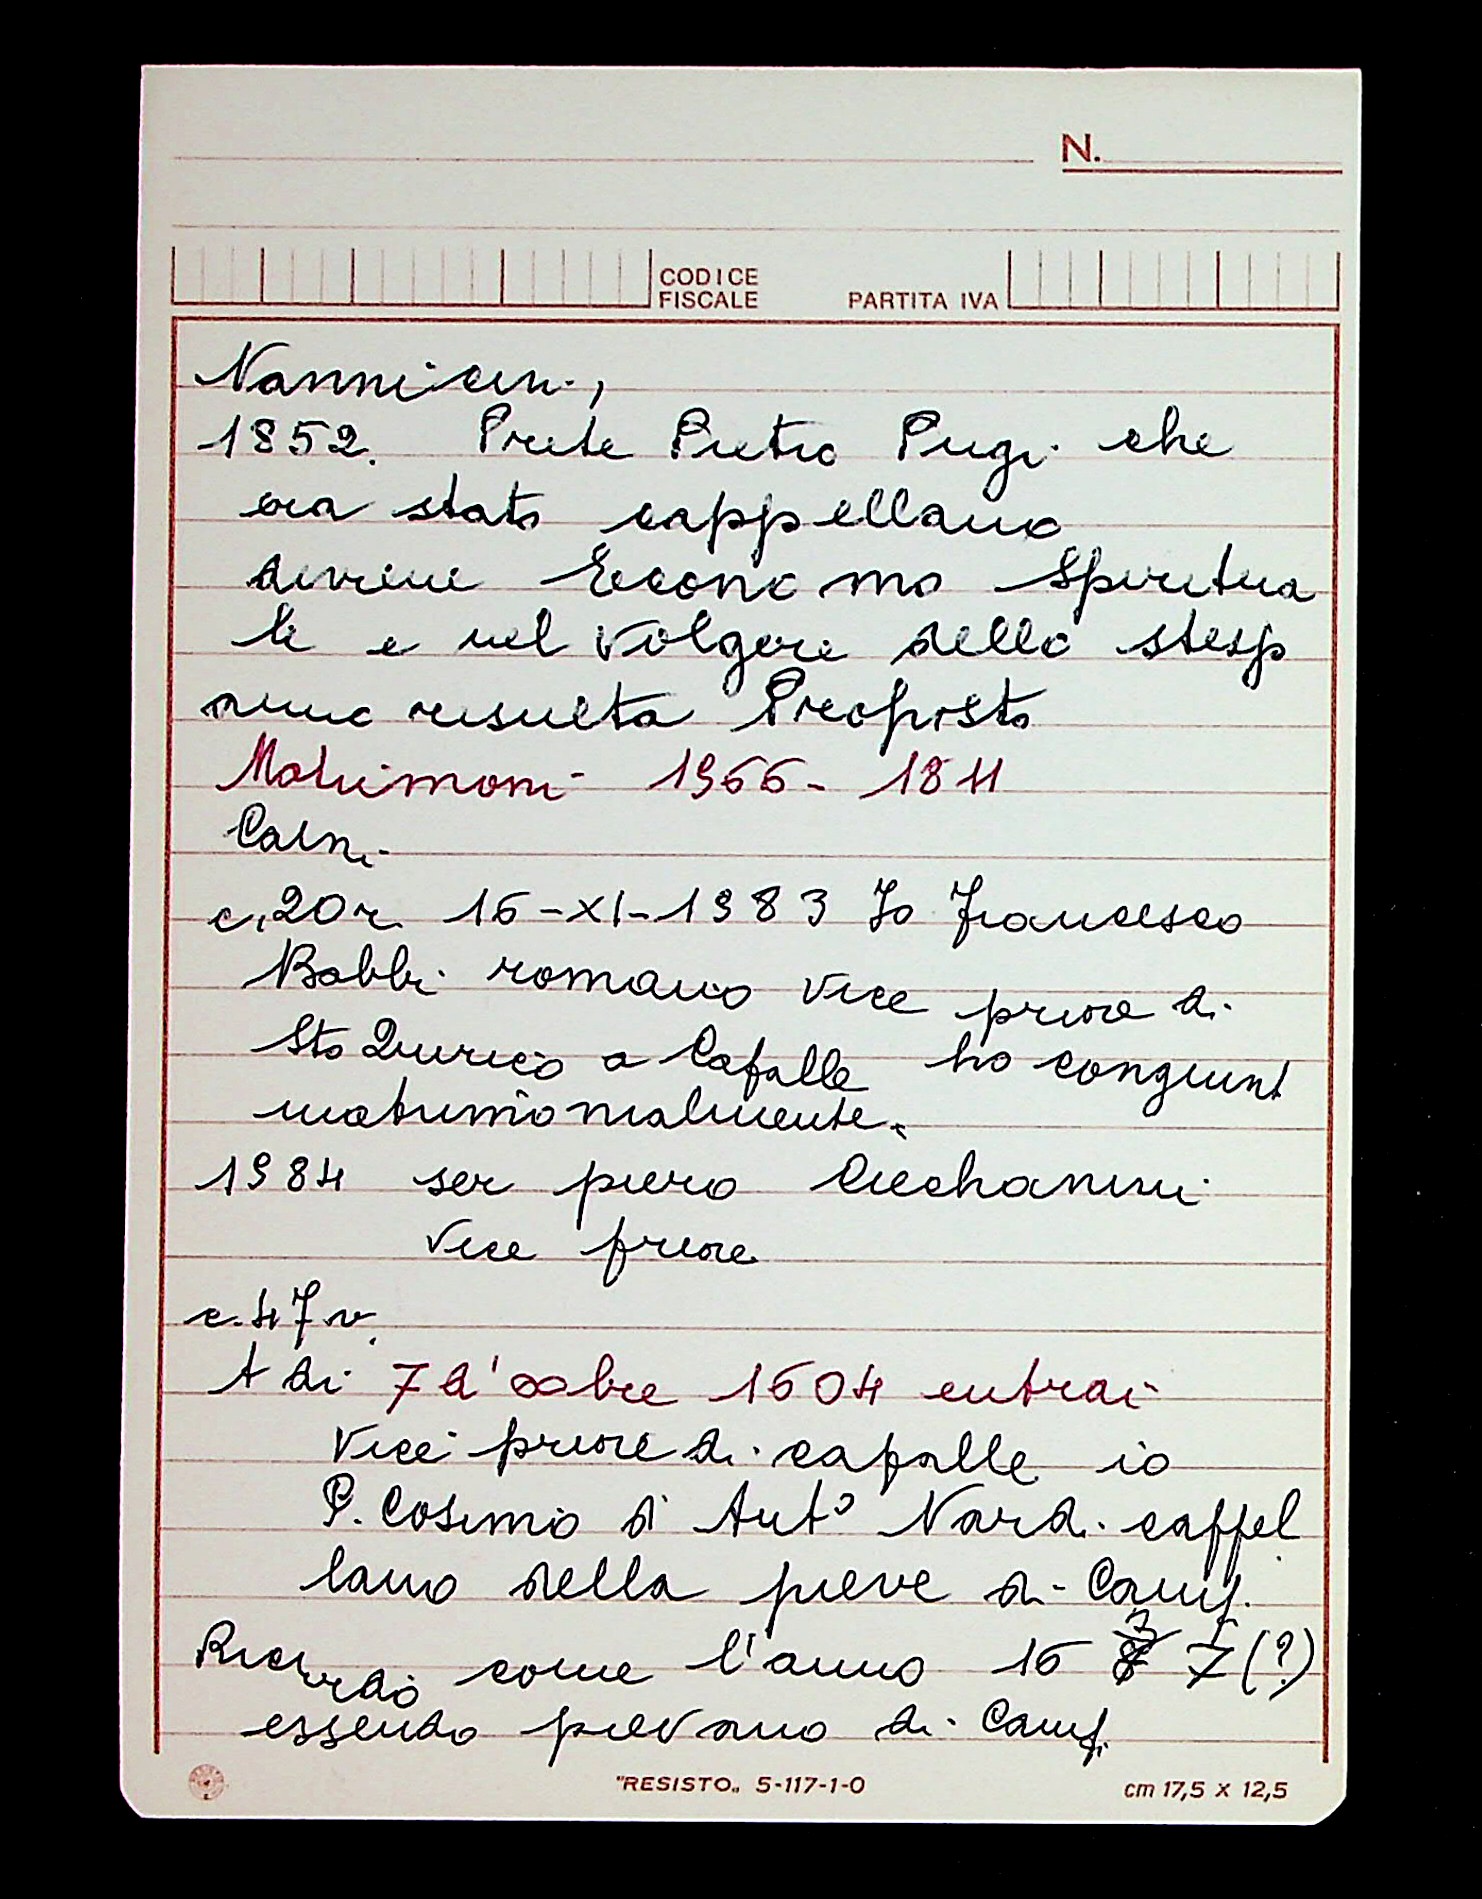 N.
CODICE
FISCALE
PARTITA IVA
Nannicin.,
1852. Prete Pietro Pugi che
era stato cappellano
diviene Economo Spiritua
le e nel volgere dello stesso
anno risulta Proposto
Matrimoni 1566 - 1811
Calni
c. 20 r. 16-XI-1583 Jo Francesco
Babbi romano vice priore di
Sto Quirico a Capalle ho congiunt
matrimonialmente.
1584 ser piero Cicchanini
vice priore
c. 47 v.
A di 7 d' oobre 1604 entrai
vice priore di capalle io
P. Cosimo di Ant° Nardi cappel
lano della pieve di Camp.
Ricordo come l'anno 16 3 7 (?)
essendo pievano di Camp.
"RESISTO„ 5-117-1-0
cm 17,5 x 12,5